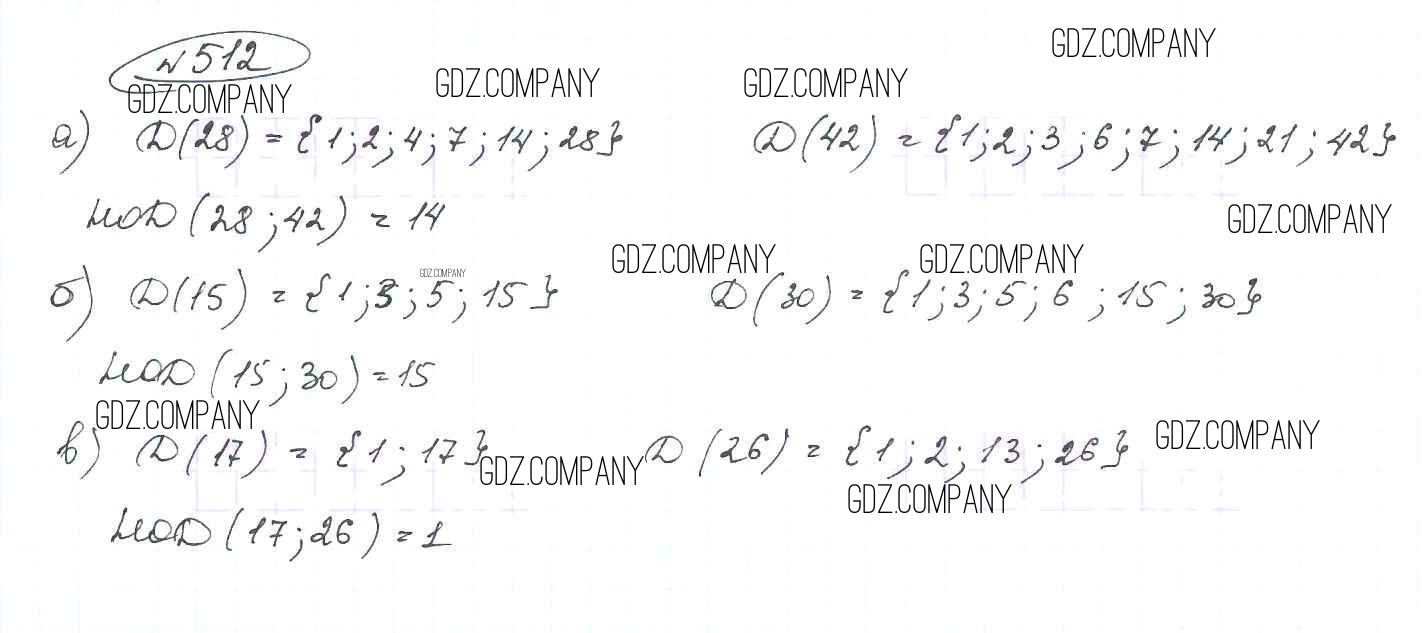 № 512
GDZ.COMPANY
GDZ.COMPANY GDZ.COMPANY GDZ.COMPANY
а) D(28) = {1; 2; 4; 7; 14; 28} D(42) = {1; 2; 3; 6; 7; 14; 21; 42}
НОD (28; 42) = 14
GDZ.COMPANY
GDZ.COMPANY GDZ.COMPANY GDZ.COMPANY
б) D(15) = {1; 3; 5; 15} D(30) = {1; 3; 5; 6; 15; 30}
НОD (15; 30) = 15
GDZ.COMPANY
в) D(17) = {1; 17} D(26) = {1; 2; 13; 26}
GDZ.COMPANY
GDZ.COMPANY
GDZ.COMPANY
НОD (17; 26) = 1